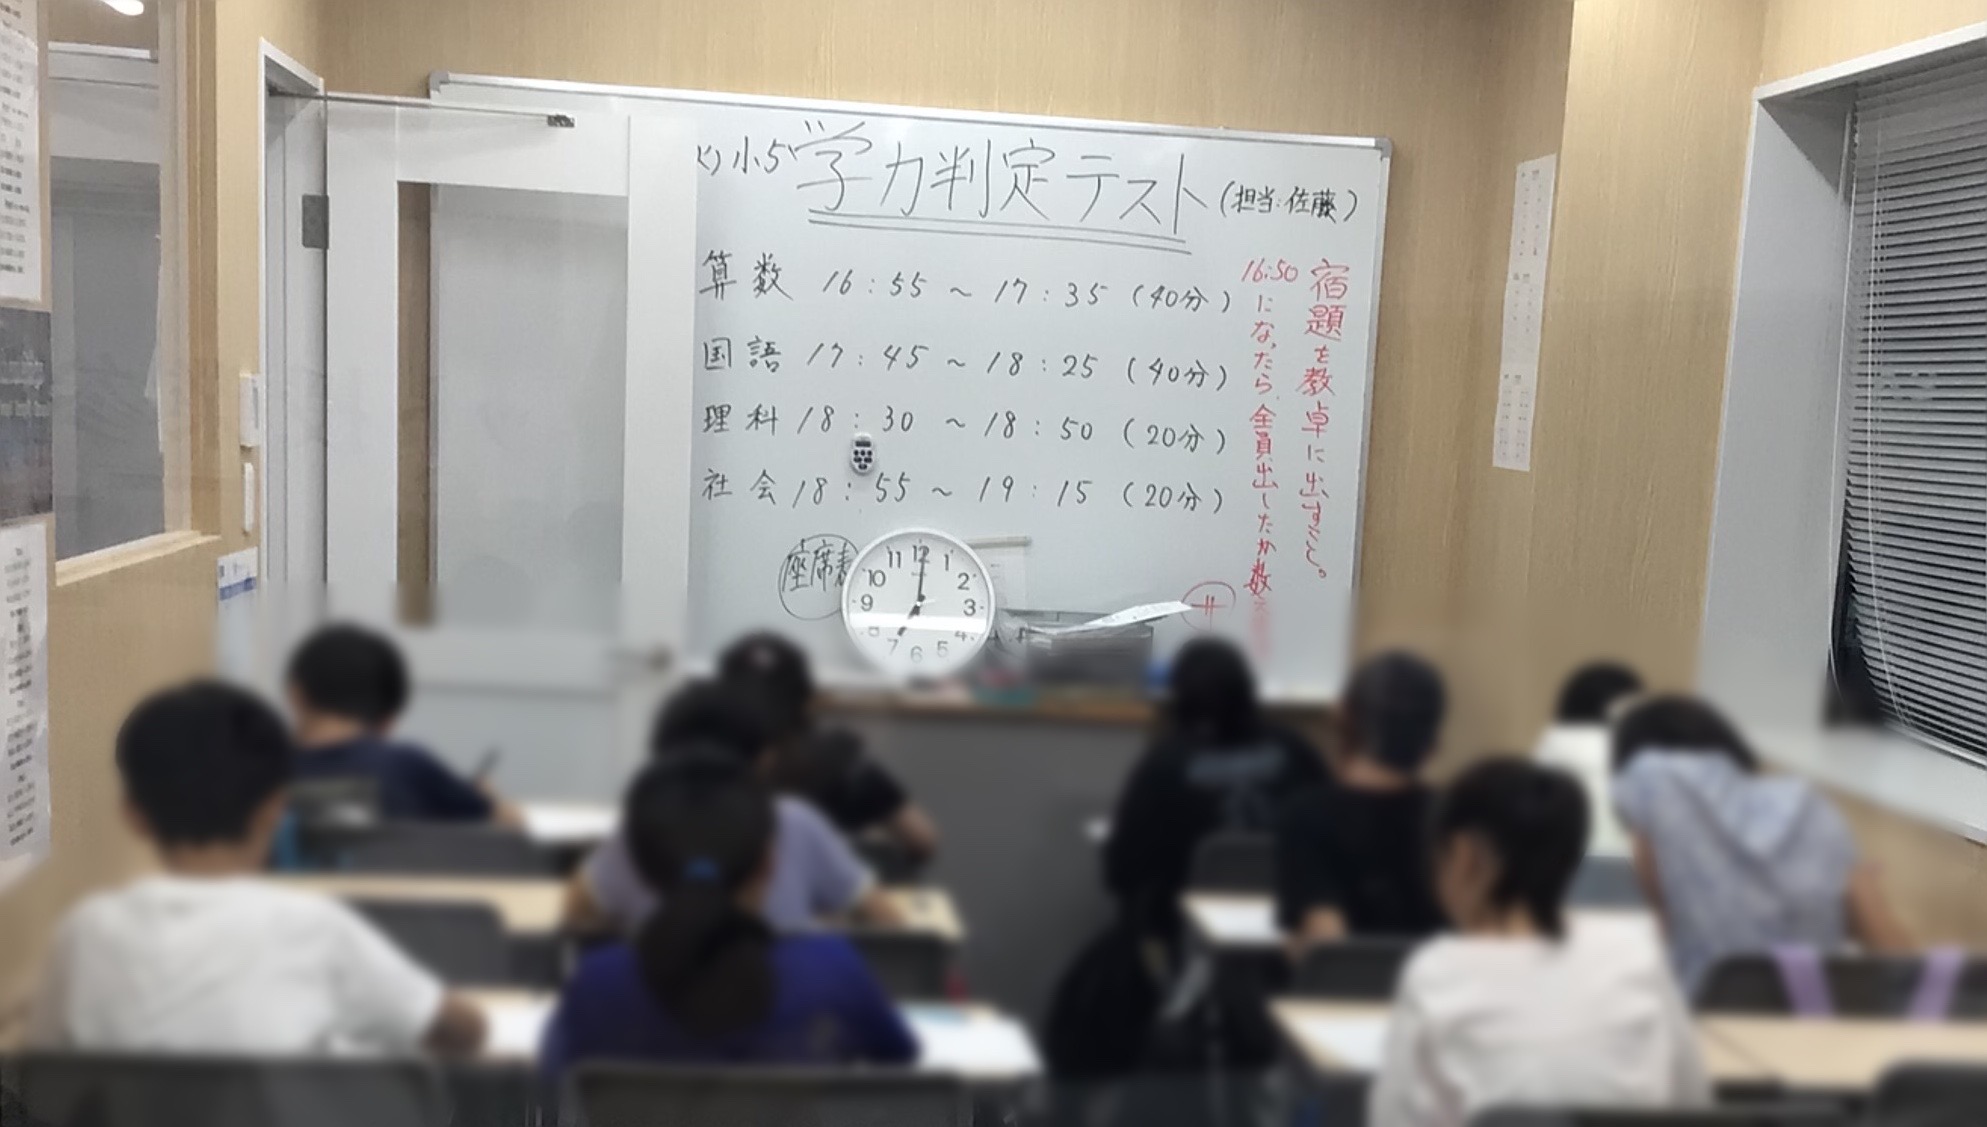 小5 学力判定テスト (担当:佐藤)
算数 16:55 ~ 17:35 (40分)
国語 17:45 ~ 18:25 (40分)
理科 18:30 ~ 18:50 (20分)
社会 18:55 ~ 19:15 (20分)
宿題を教卓に出すこと。
16:50になったら全員出したか数
座席表
11 12 1
10 2
9 3
8 4
7 6 5